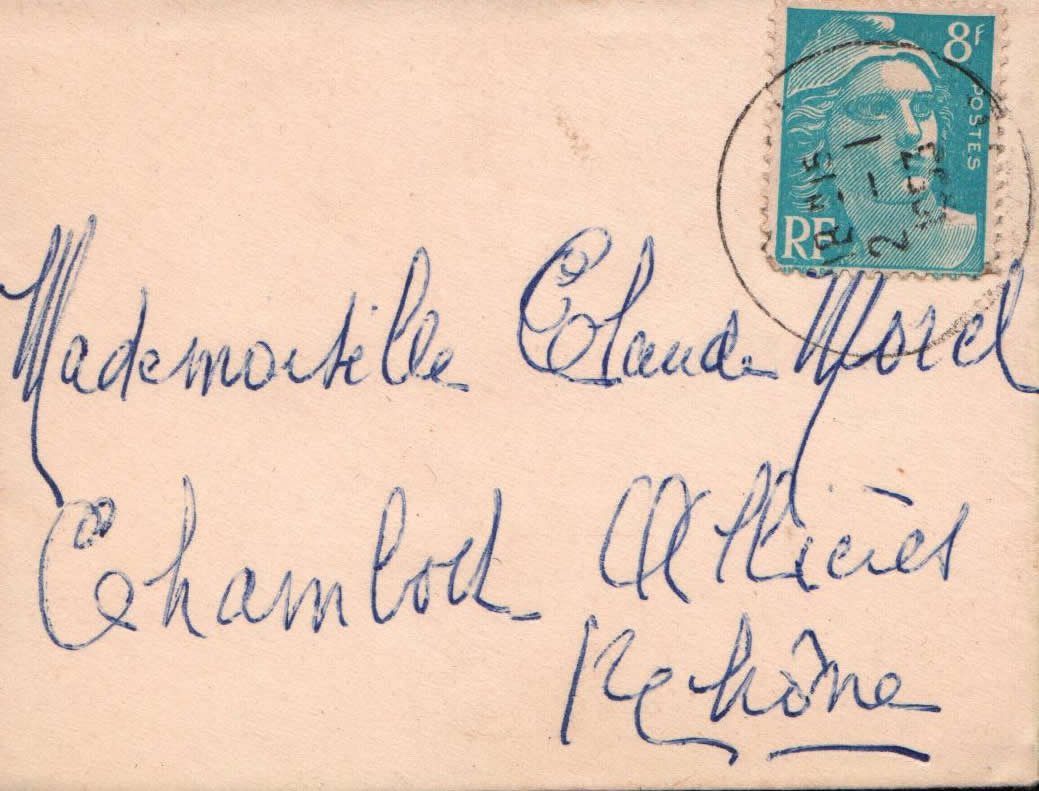 8F
POSTES
RF
18 H 15
2 - 1
1953
Mademoiselle Claude Morel
Chambost Allières
Rhône